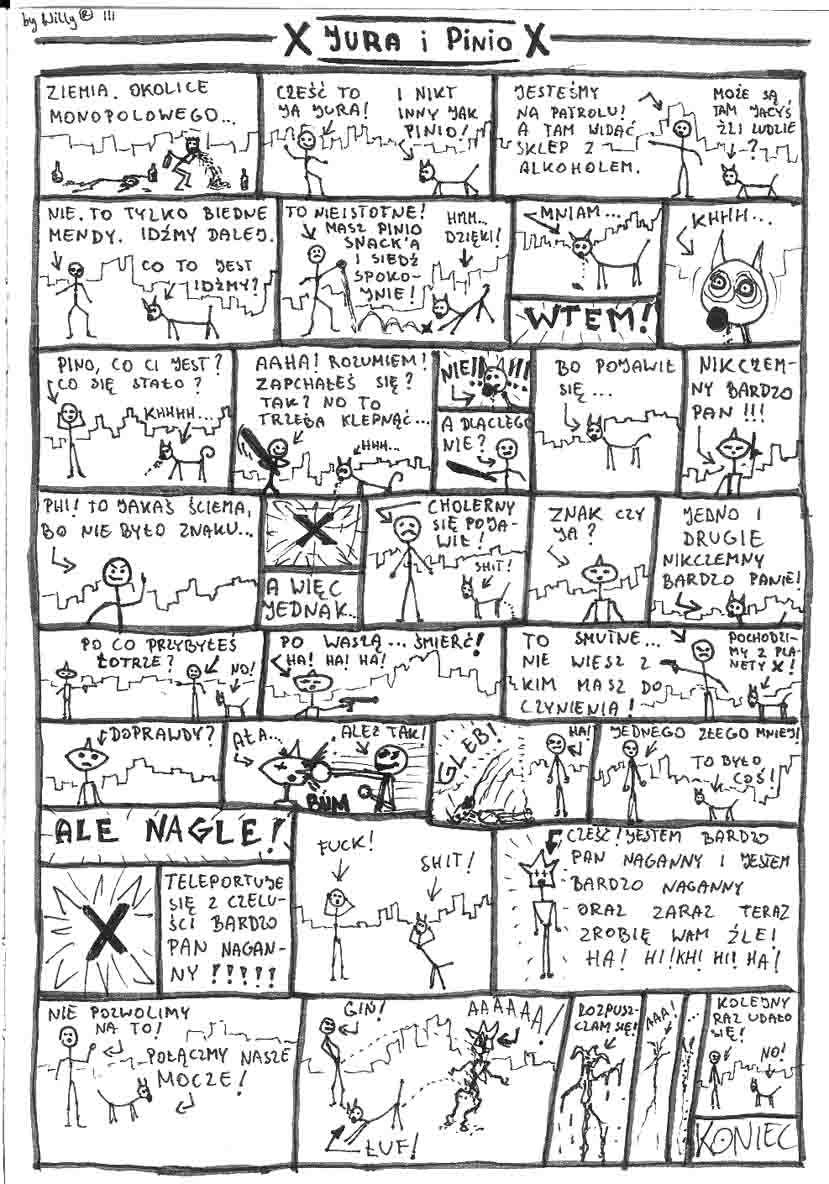 by Willy® !!!
X JURA i PINIO X
ZIEMIA. OKOLICE
MONOPOLOWEGO...
CZEŚĆ TO
JA JURA!
I NIKT
INNY JAK
PINIO!
JESTEŚMY
NA PATROLU!
A TAM WIDAĆ
SKLEP Z
ALKOHOLEM.
MOŻE SĄ
TAM JACYŚ
ŹLI LUDZIE
?
NIE. TO TYLKO BIEDNE
MENDY. IDŹMY DALEJ.
CO TO JEST
IDŹMY?
TO NIEISTOTNE!
MASZ PINIO
SNACK'A
I SIEDŹ
SPOKO-
JNIE!
HMM..
DZIĘKI!
MNIAM...
WTEM!
KHHH...
PINO, CO CI JEST?
CO SIĘ STAŁO?
KHHHH...
AAHA! ROZUMIEM!
ZAPCHAŁEŚ SIĘ?
TAK? NO TO
TRZEBA KLEPNĄĆ...
HHH...
NIE!!!!!
A DLACZEGO
NIE?
BO POJAWIŁ
SIĘ...
NIKCZEM-
NY BARDZO
PAN!!!
PHI! TO JAKAŚ ŚCIEMA,
BO NIE BYŁO ZNAKU...
X
A WIĘC
JEDNAK...
CHOLERNY
SIĘ POJA-
WIŁ!
SHIT!
ZNAK CZY
JA?
JEDNO I
DRUGIE
NIKCZEMNY
BARDZO PANIE!
PO CO PRZYBYŁEŚ
ŁOTRZE?
NO!
PO WASZĄ... ŚMIERĆ!
HA! HA! HA!
TO SMUTNE...
NIE WIESZ Z
KIM MASZ DO
CZYNIENIA!
POCHODZI-
MY Z PLA-
NETY X!
DOPRAWDY?
AŁA...
BUM
ALEŻ TAK!
GLEB!
HA!
JEDNEGO ZŁEGO MNIEJ!
TO BYŁO
COŚ!
ALE NAGLE!
X
TELEPORTUJE
SIĘ Z CZELU-
ŚCI BARDZO
PAN NAGAN-
NY !!!!!
FUCK!
SHIT!
CZEŚĆ! JESTEM BARDZO
PAN NAGANNY I JESTEM
BARDZO NAGANNY
ORAZ ZARAZ TERAZ
ZROBIĘ WAM ŹLE!
HA! HI! KH! HI! HA!
NIE POZWOLIMY
NA TO!
POŁĄCZMY NASZE
MOCZE!
GIŃ!
ŁUF!
AAAAAA!
ROZPUSZ-
CZAM SIĘ!
AAA!
...
KOLEJNY
RAZ UDAŁO
SIĘ!
NO!
KONIEC